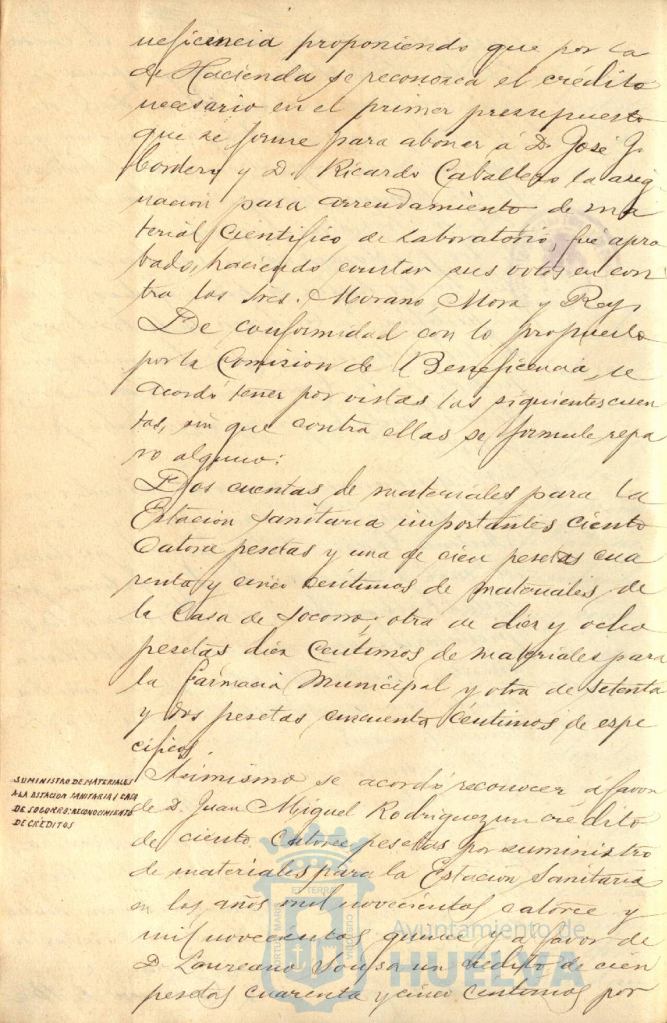 neficencia proponiendo que por la
de Hacienda se reconozca el crédito
necesario en el primer presupuesto
que se forme para abonar á D. José J.
Cordero y D. Ricardo Caballero la asig
nación para arrendamiento de ma
terial Científico de Laboratorio, fué apro
bado, haciendo constar sus votos en con
tra los Sres. Morano, Mora y Rey.
De conformidad con lo propuesto
por la Comision de Beneficencia, se
acordó tener por vistas las siguientes cuen
tas, sin que contra ellas se formule repa
ro alguno:
Dos cuentas de materiales para la
Estacion Sanitaria importantes ciento
catorce pesetas y una de cien pesetas cua
renta y cinco céntimos de materiales de
la Casa de Socorro; otra de diez y ocho
pesetas diez céntimos de materiales para
la Farmacia Municipal y otra de setenta
y dos pesetas cincuenta céntimos de espe
cíficos.
SUMINISTRO DE MATERIALES
A LA ESTACION SANITARIA Y CASA
DE SOCORRO: RECONOCIMIENTO
DE CRÉDITOS
Asimismo se acordó reconocer á favor
de D. Juan Miguel Rodriguez un crédito
de ciento catorce pesetas por suministro
de materiales para la Estacion Sanitaria
en los años mil novecientos catorce y
mil novecientos quince y a favor de
D. Laureano Sousa un crédito de cien
pesetas cuarenta y cinco centimos por
Ayuntamiento de
HUELVA